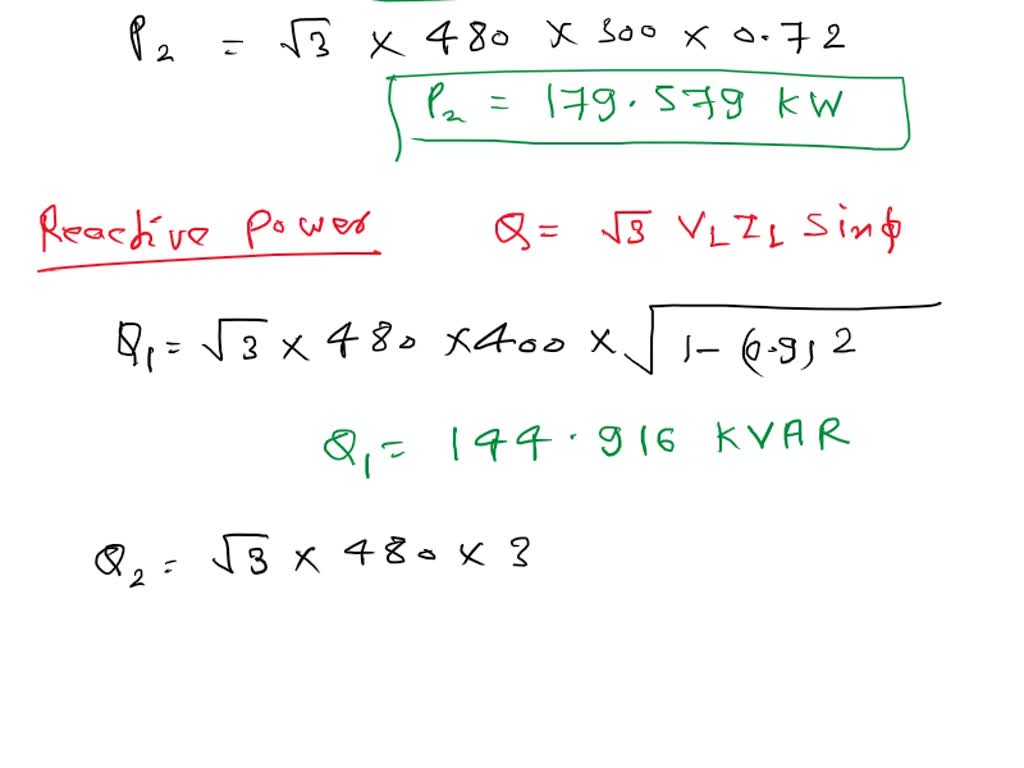 P2 = √3 × 480 × 300 × 0.72
P2 = 179.579 KW
Reactive Power Q = √3 VL IL Sinϕ
Q1 = √3 × 480 × 400 × √1-(0.9)2
Q1 = 144.916 KVAR
Q2 = √3 × 480 × 3